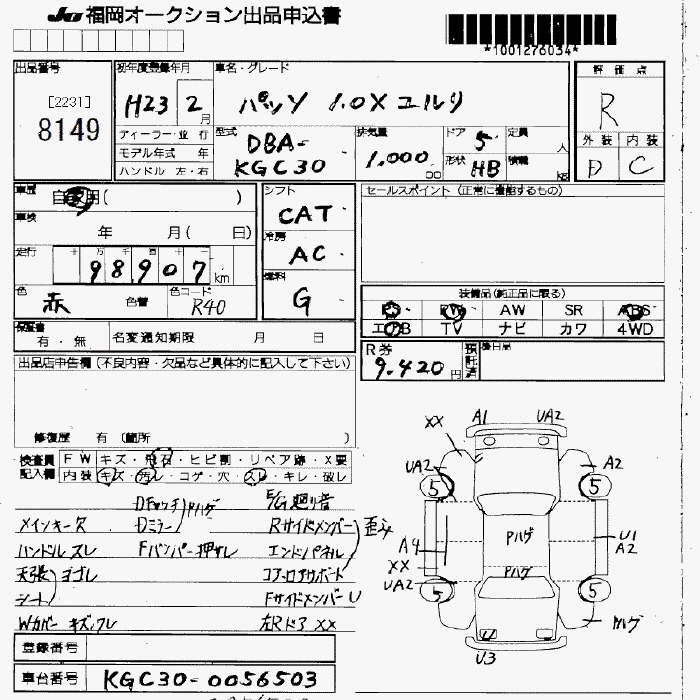 JU 福岡オークション出品申込書
*1001276034*
出品番号
[2231]
8149
初年度登録年月
H23 2 月
車名・グレード
パッソ 1.0X ユルリ
評価点
R
外装 内装
D C
ディーラー・並行
モデル年式 年
ハンドル 左・右
型式
DBA-
KGC30
排気量
1.000
cc
ドア 5
形状 HB
定員 人
積載 kg
車歴
自家用( )
車検
年 月( 日)
走行
十 万 千 百 十 一
98907 km
色
赤
色替
色コード
R40
シフト
CAT
冷房
AC
燃料
G
セールスポイント (正常に機能するもの)
装備品(純正品に限る)
PS PW AW SR ABS
エアB TV ナビ カワ 4WD
保証書
有・無
名変通知期限 月 日
R券
9.420円
預託済
後日品
出品店申告欄 (不良内容・欠品など具体的に記入して下さい)
修復歴 有 (箇所 )
検査員
記入欄
FW キズ・飛石・ヒビ割・リペア跡・X要
内装 キズ・汚レ・コゲ・穴・スレ・キレ・破レ
Dドアウチ
ハゲ
E/G廻り音
メインキー欠
Dミラー
Rサイドメンバー
歪み
ハンドルスレ
Fバンパー押サレ
エンドパネル
天張
ヨゴレ
コアロアサポート
シート
FサイドメンバーU
Wカバーキズ、スレ
左Rドア XX
登録番号
車台番号 KGC30-0056503
A1 UA2
XX
UA2 A2
5 5
Pハゲ
A4
U1
A2
XX
Pハゲ
UA2
5 5
ハゲ
U
U3